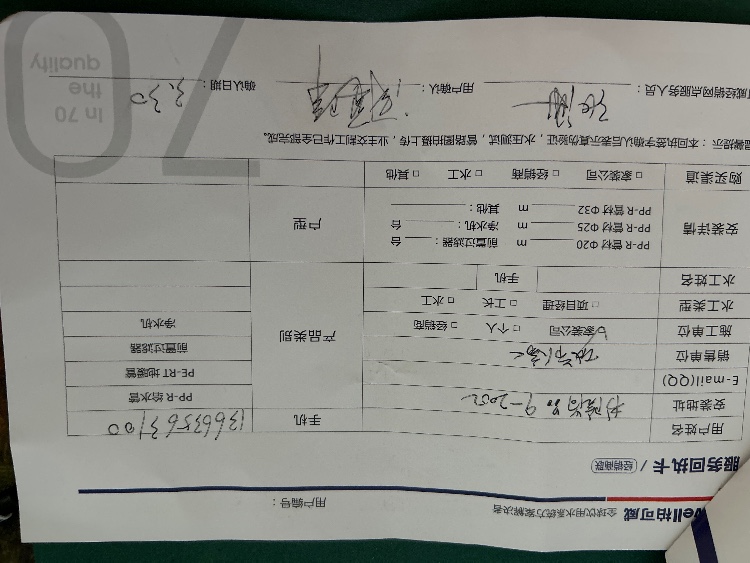 vell柏可威 全球饮用水系统方案解决者 用户编号：
服务回执卡 / 经销商联
用户姓名 手机 13663563700
安装地址 9-2052
E-mail(QQ)
销售单位
施工单位 家装公司 个人 经销商
水工类型 项目经理 工长 水工
水工姓名 手机
产品类别
PP-R 给水管
PE-RT 地暖管
前置过滤器
净水机
安装详情
PP-R 管材 Φ20 m 前置过滤器： 台
PP-R 管材 Φ25 m 净水机： 台
PP-R 管材 Φ32 m 其他：
户型
购买渠道 家装公司 经销商 水工 其他
温馨提示：本回执签字确认后表示真伪验证，水压测试，管路图拍摄上传，业主交割工作已全部完成。
可威经销网点服务人员： 用户确认： 确认日期： 3.30
In 70
the
quality
70